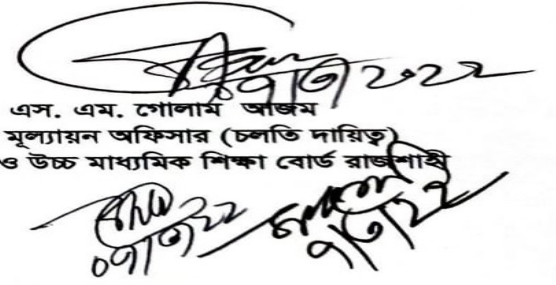 ০৭/৩/২০২২
এস. এম. গোলাম আজম
মূল্যায়ন অফিসার (চলতি দায়িত্ব)
ও উচ্চ মাধ্যমিক শিক্ষা বোর্ড রাজশাহী
০৭/৩/২২
৭/৩/২২